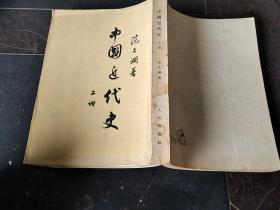 范文瀾著
中國近代史
上册
中國近代史 上册 范文瀾著 人民出版社